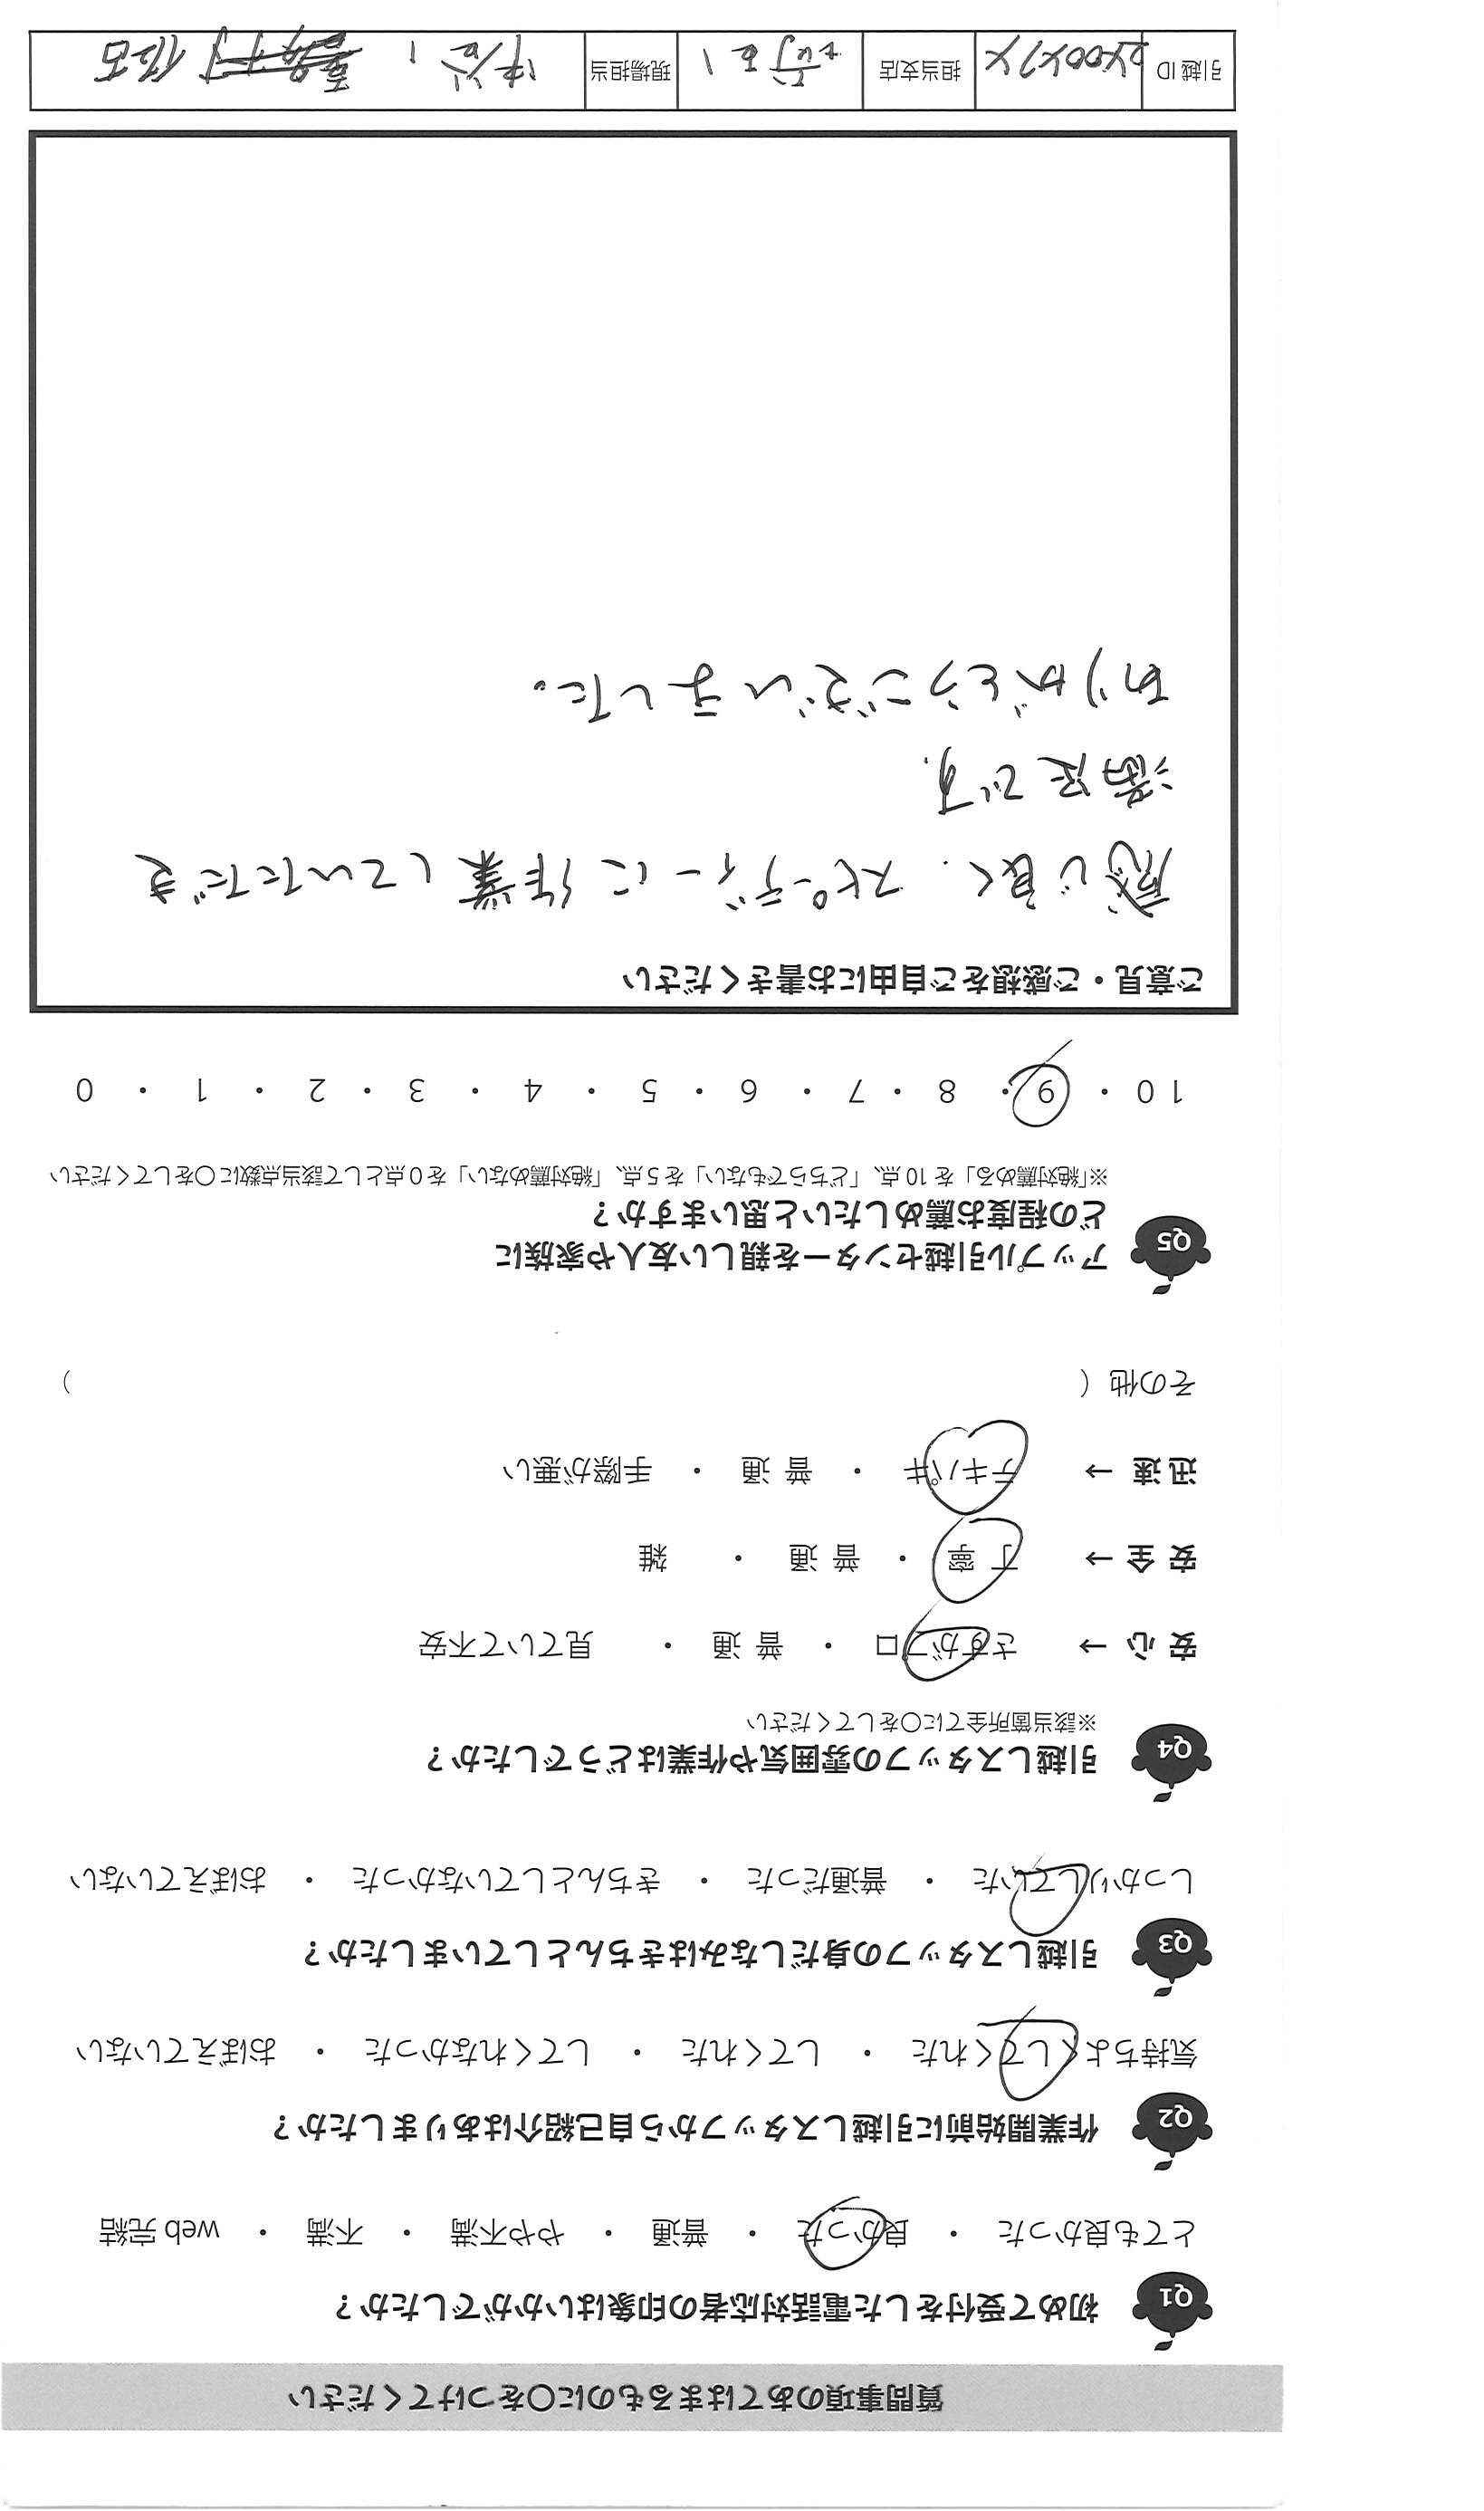 質問事項のあてはまるものに〇をつけてください
Q1 初めて受付をした電話対応者の印象はいかがでしたか？
とても良かった ・ 良かった ・ 普通 ・ やや不満 ・ 不満 ・ web 完結
Q2 作業開始前に引越しスタッフから自己紹介はありましたか？
気持ちよくしてくれた ・ してくれた ・ してくれなかった ・ おぼえていない
Q3 引越しスタッフの身だしなみはきちんとしていましたか？
しっかりしていた ・ 普通だった ・ きちんとしていなかった ・ おぼえていない
Q4 引越しスタッフの雰囲気や作業はどうでしたか？
※該当箇所全てに〇をしてください
安 心 → さすがプロ ・ 普 通 ・ 見ていて不安
安 全 → 丁 寧 ・ 普 通 ・ 雑
迅 速 → テキパキ ・ 普 通 ・ 手際が悪い
その他（ ）
Q5 アップル引越センターを親しい友人や家族に
どの程度お薦めしたいと思いますか？
※「絶対薦める」を 10 点、「どちらでもない」を 5 点、「絶対薦めない」を 0 点として該当点数に〇をしてください
10 ・ 9 ・ 8 ・ 7 ・ 6 ・ 5 ・ 4 ・ 3 ・ 2 ・ 1 ・ 0
ご意見・ご感想をご自由にお書きください
感じ良く、スピーディーに作業していただき
満足です。
ありがとうございました。
引越 ID 担当支店 現場担当